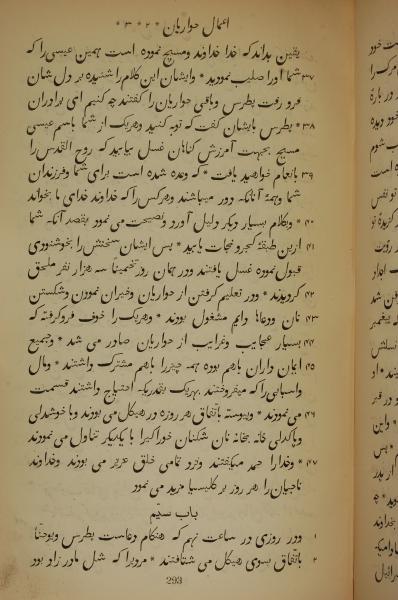 اعمال حواریان * ۲ * ۳ *
یقین بداند که خدا خداوند ومسیح نموده است همین عیسی را که
۳۷ شما اورا صلیب نمودید * وایشان این کلام را شنیده بر دل شان
فرو رفت بطرس وباقی حواریان را گفتند چه کنیم ای برادران
۳۸ * بطرس بایشان گفت که توبه کنید وهریک از شما باسم عیسی
مسیح بجهت آمرزش کناهان غسل بیابید که روح القدس را
۳۹ بانعام خواهید یافت * که وعده شده است برای شما وفرزندان
شما وهمهٔ آنانکه دور میباشند وهرکس را که خداوند خدای ما بخواند
۴۰ * وبکلام بسیار دیکر دلیل آورد ونصیحت می نمود بقصد آنکه شما
۴۱ ازین طبقهٔ کجرو نجات یابید * پس ایشان سخنش را بخوشنودی
قبول نموده غسل یافتند ودر همان روز تخمیناً سه هزار نفر ملحق
۴۲ کردیدند * ودر تعلیم کرفتن از حواریان وخیران نمودن وشکستن
۴۳ نان ودعاها دایم مشغول بودند * وهریک را خوف فروکرفته که
۴۴ بسیار عجایب وغرایب از حواریان صادر می شد * وجمیع
۴۵ ایمان داران باهم بوده همه چیز را باهم مشترک داشتند * ومال
واسبابی را که میفروختند بهریک بقدریکه احتیاج داشتند قسمت
۴۶ می نمودند * وپیوسته باتفاق هر روزه در هیکل می بودند وبا خوشدلی
وپاکدلی خانه بخانه نان شکنان خوراکرا با یکدیکر تناول می نمودند
۴۷ * وخدا را حمد میکفتند ونزد تمامی خلق عزیز می بودند وخداوند
ناجیان را هر روز بر کلیسیا مزید می نمود
باب سیّم
۱ ودر روزی در ساعت نهم که هنکام دعاست بطرس ویوحنّا
۲ باتّفاق بسوی هیکل می شتافتند * مردیرا که شل مادر زاد بود
293